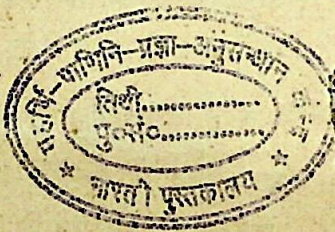 महर्षि-पाणिनि-प्रज्ञा-अनुसन्धान
तिथि...............
पु०सं०...............
* भारती पुस्तकालय *